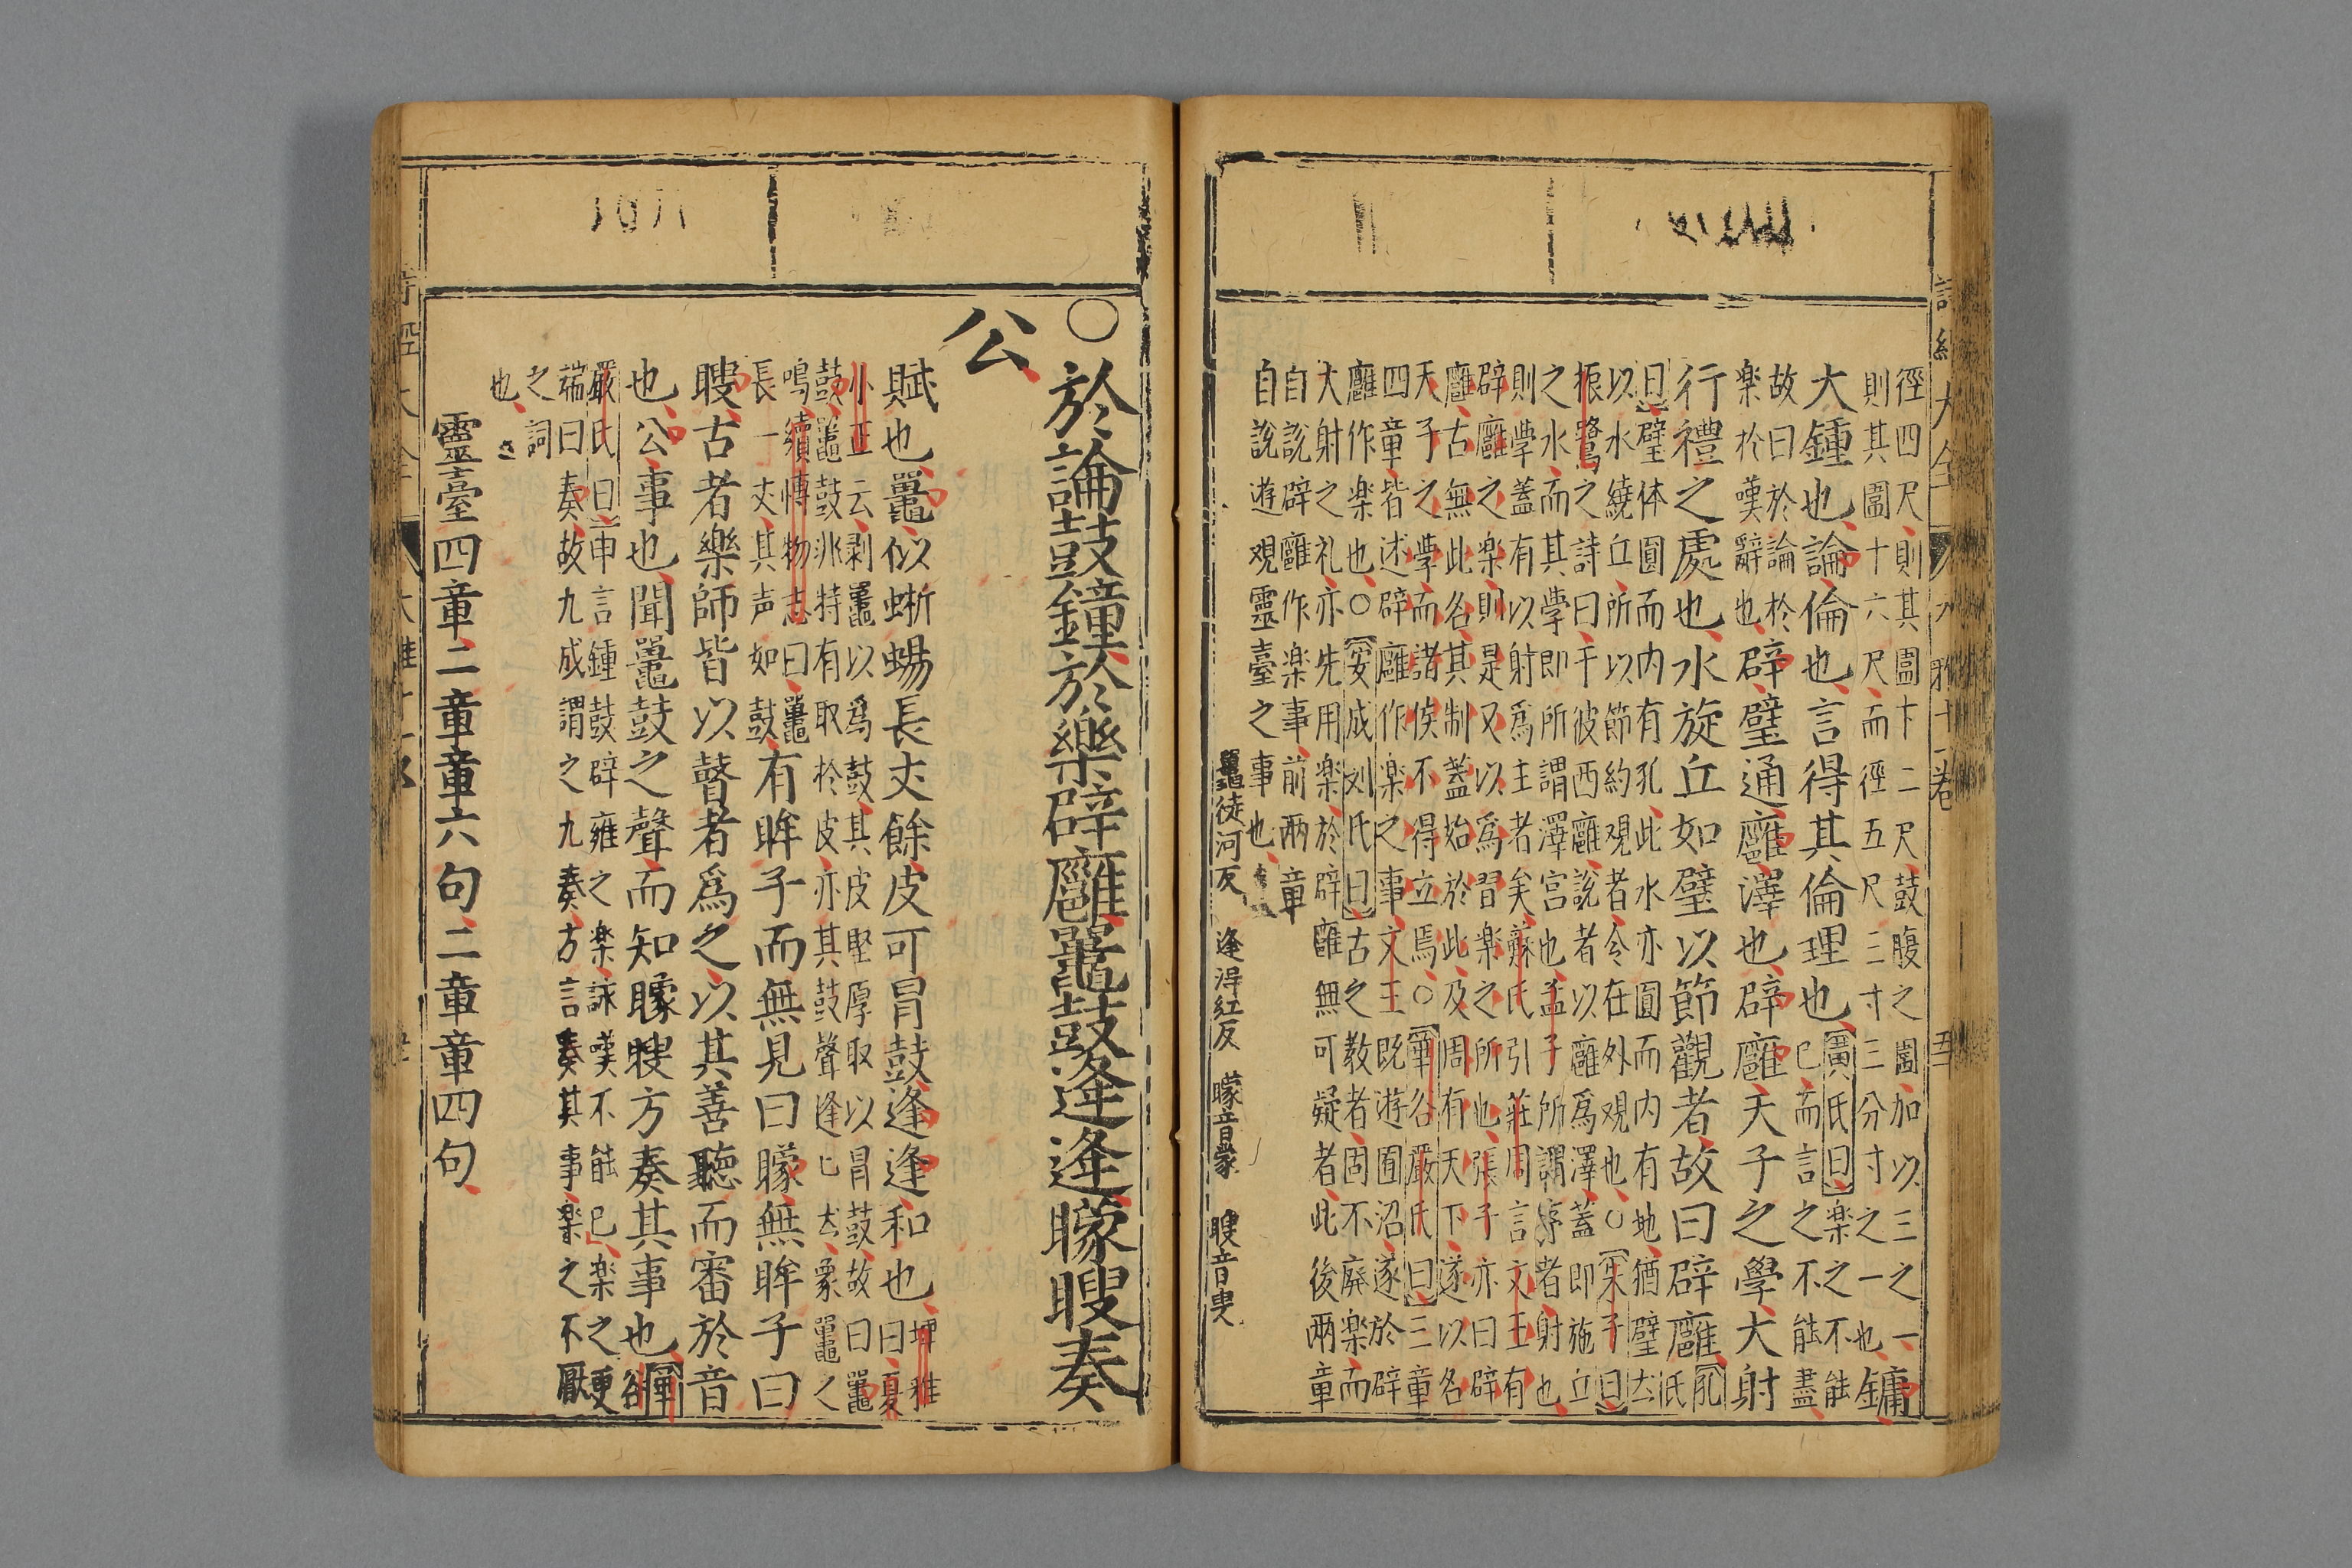 徑四尺則其圍十二尺鼓腹之圍加以三之一
則其圍十六尺而徑五尺三寸三分寸之一也鏞
大鍾也論倫也言得其倫理也廣氏曰楽之不能
已而言之不能盡
故曰於論於
楽於嘆辭也辟璧通廱澤也辟廱天子之學大射
行禮之處也水旋丘如璧以節觀者故曰辟廱孔氏
曰璧体圓而内有孔此水亦圓而内有地猶璧
以水繞丘所以節約观者令在外观也○朱子曰
振鷺之詩曰于彼西廱說者以廱爲澤蓋即施立
之水而其學即所謂澤宮也孟子所謂序者射也
則學蓋有以射爲主者矣蘇氏引莊周言文王有
辟廱之楽則是又以爲習楽之所也張子亦曰辟
廱古無此名其制蓋始於此及周有天下遂以名
天子之學而諸侯不得立焉○華谷嚴氏曰三章
四章皆述辟廱作楽之事文王既遊囿沼遂於辟
廱作楽也○安成刘氏曰古之教者固不廢楽而
大射之礼亦先用楽於辟廱無可疑者此後两章
自說辟廱作楽事前两章
自說遊观靈臺之事也
鼉徒河反 逢淂紅反 矇音蒙 瞍音叟
○於論鼓鐘於樂辟廱鼉鼓逢逢矇瞍奏
公
賦也鼉似蜥蜴長丈餘皮可冒鼓逢逢和也埤雅曰夏
小正云剥鼉以爲鼓其皮堅厚取以冒鼓故曰鼉
鼓鼉鼓非特有取於皮亦其鼓聲逢匕然象鼉之
鳴續博物志曰鼉
長一丈其声如鼓有眸子而無見曰矇無眸子曰
瞍古者樂師皆以瞽者爲之以其善聽而審於音
也公事也聞鼉鼓之聲而知矇瞍方奏其事也華谷
嚴氏曰申言鍾鼓辟雍之楽詠嘆不能已楽之更
端曰奏故九成謂之九奏方言奏其事楽之不厭
之詞
也
靈臺四章二章章六句二章章四句